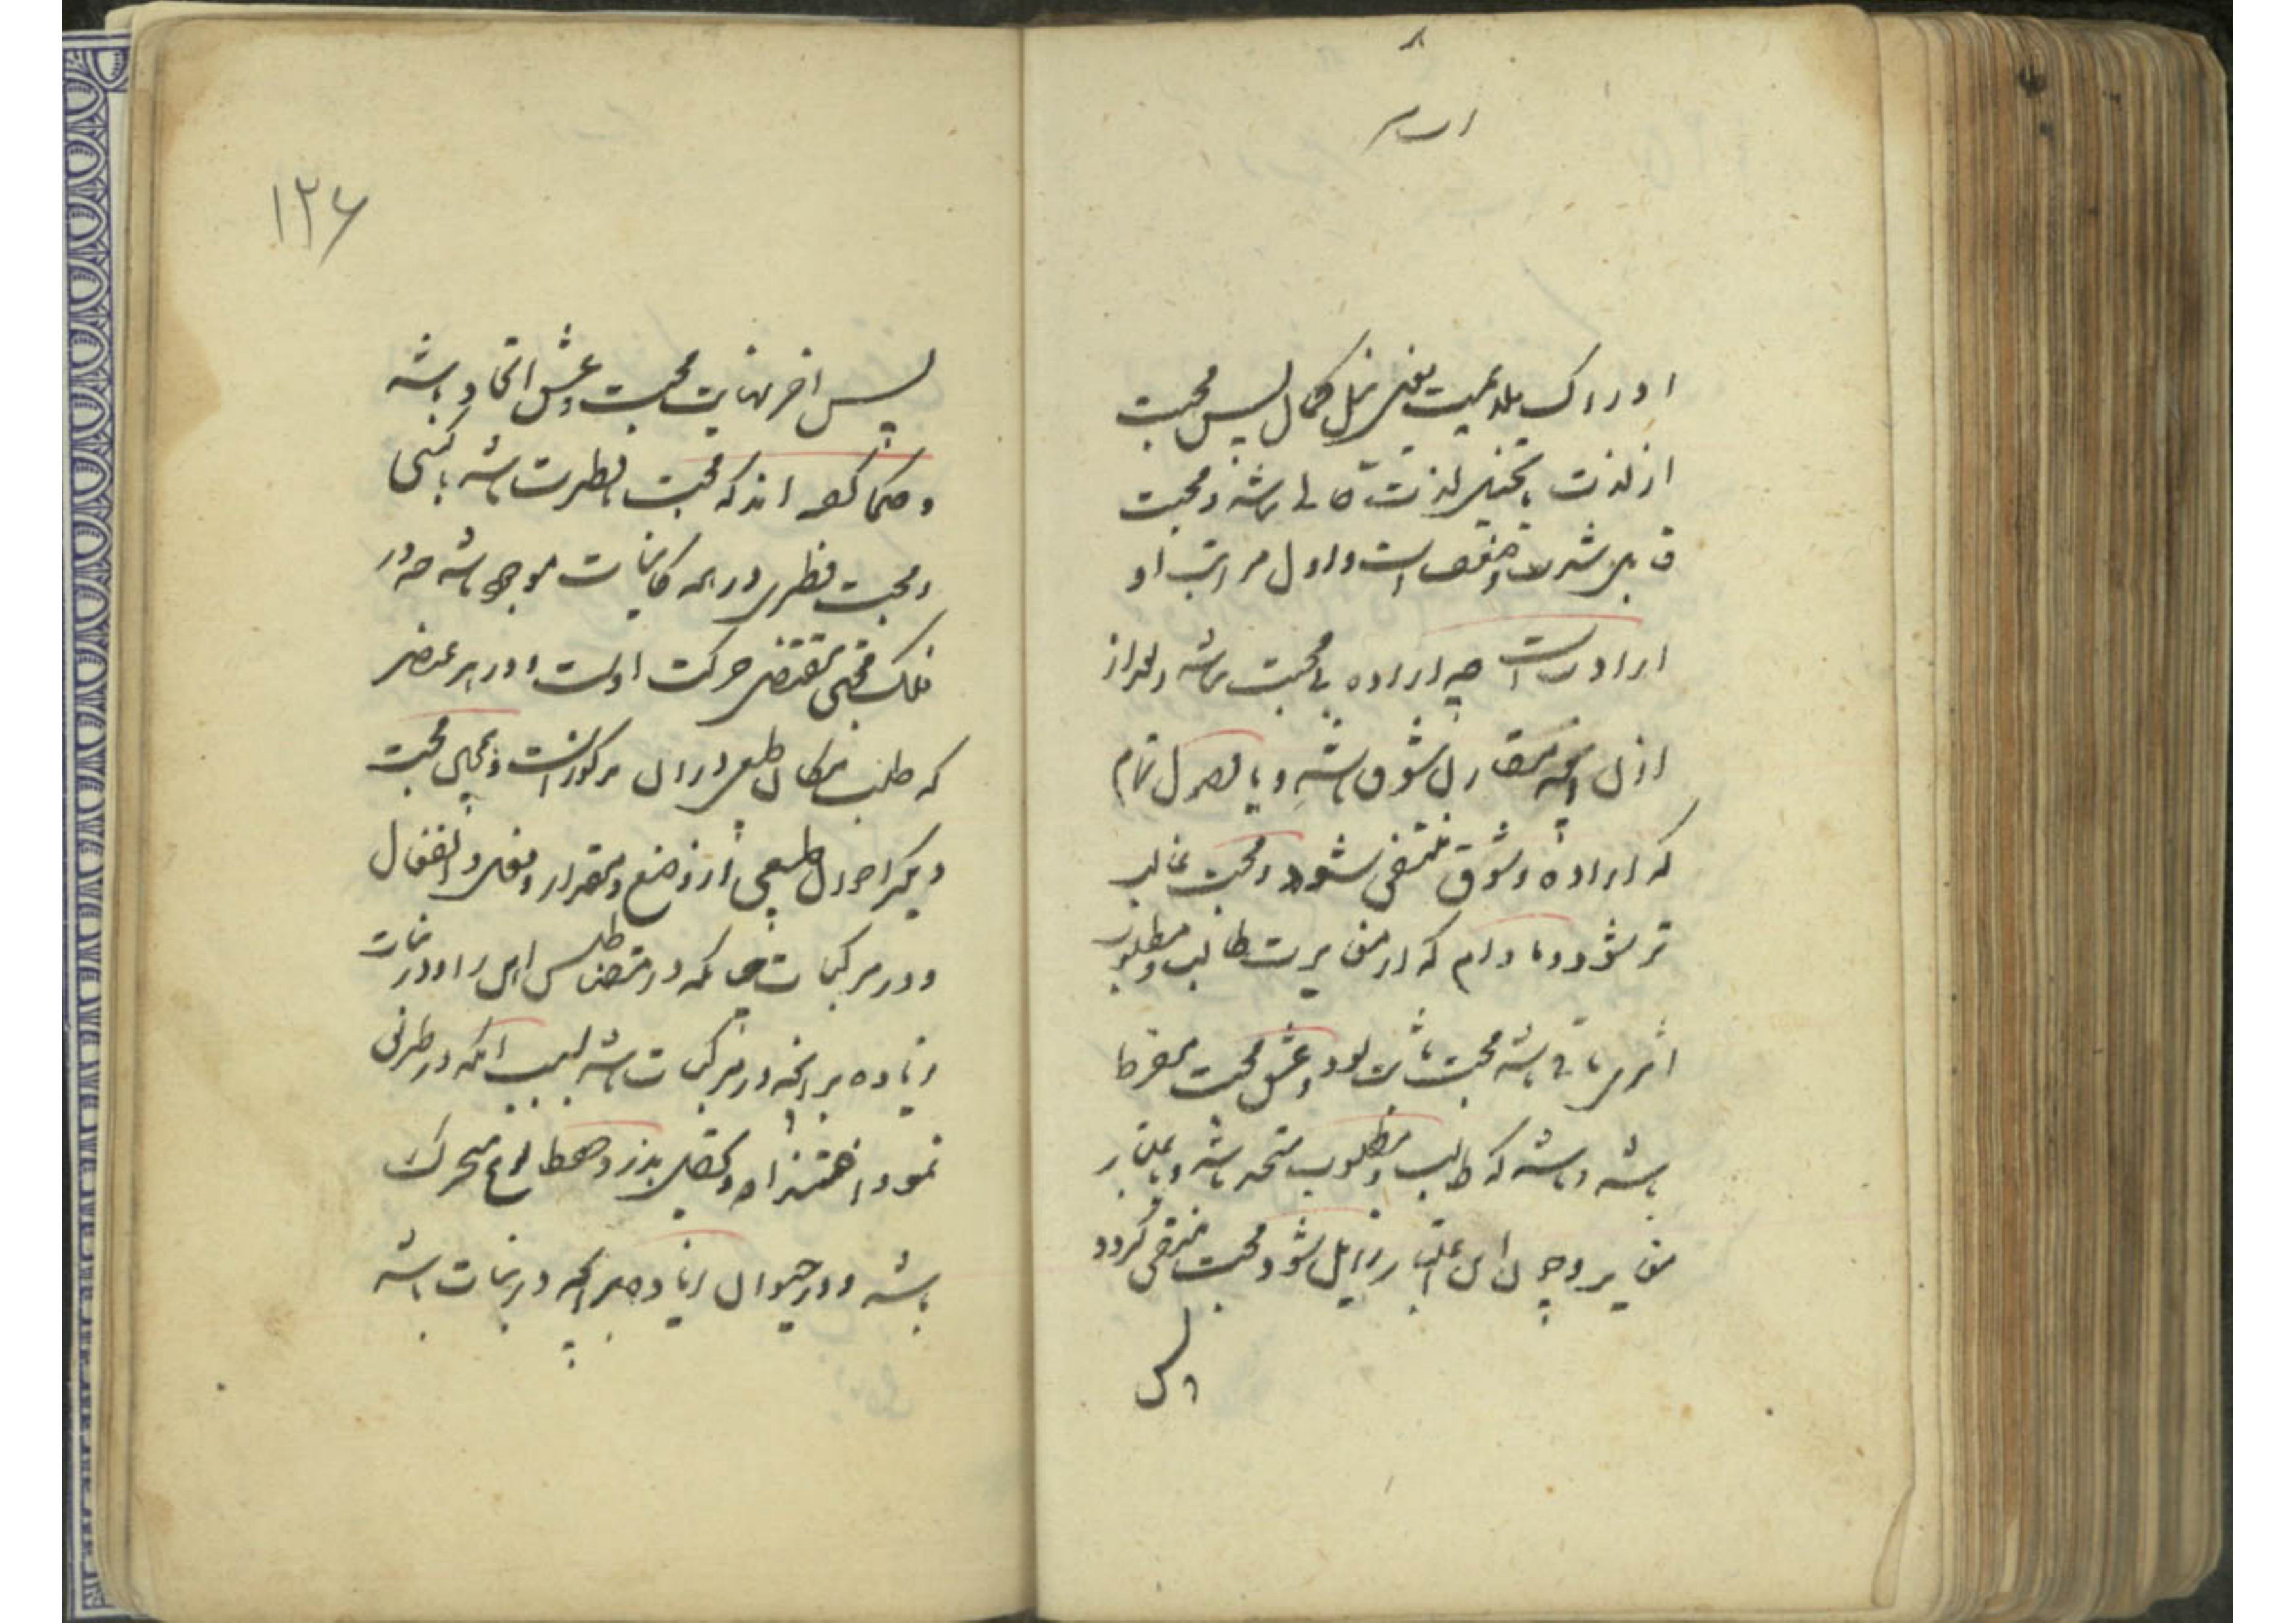 ادراک ملایمت یعنی نیل کمال پس محبت
از لذت یا تخیل لذت خالی نباشد و محبت
قابل شدت و ضعف است و اول مراتب او
ارادت است چه اراده بی محبت نباشد و بعد از
ازان آنچه مقارن شوق باشد و با وصول تمام
که اراده و شوق منتفی شود و محبت غالب
تر شود و مادام که از مغایرت طالب و مطلوب
اثری باقی باشد محبت ثابت بود و عشق محبت مفرط
باشد و باشد که طالب و مطلوب متحد باشد و باعتبار
مغایر و چون این اعتبار زایل شود محبت منتفی گردد
پس
۱۲۶
پس آخر نهایت محبت و عشق اتحاد باشد
و حکما گفته اند که محبت فطرت باشد یا کسبی
و محبت فطری در همه کاینات موجود باشد چه در
فلک محبتی مقتضی حرکت اوست و در هر عنصر
که طلب مکان طبیعی دران مرکوز است و همچنین محبت
دیگر احوال طبیعی از وضع و مقدار و فعل و انفعال
و در مرکبات چنانکه در مقناطیس آهن را و در نبات
زیاده بر آنچه در مرکبات باشد بسبب آنکه در طریق
نمو و اغتذا و تحصیل بذر و حفظ نوع متحرک
باشد و در حیوان زیاده بر آنچه در نبات باشد